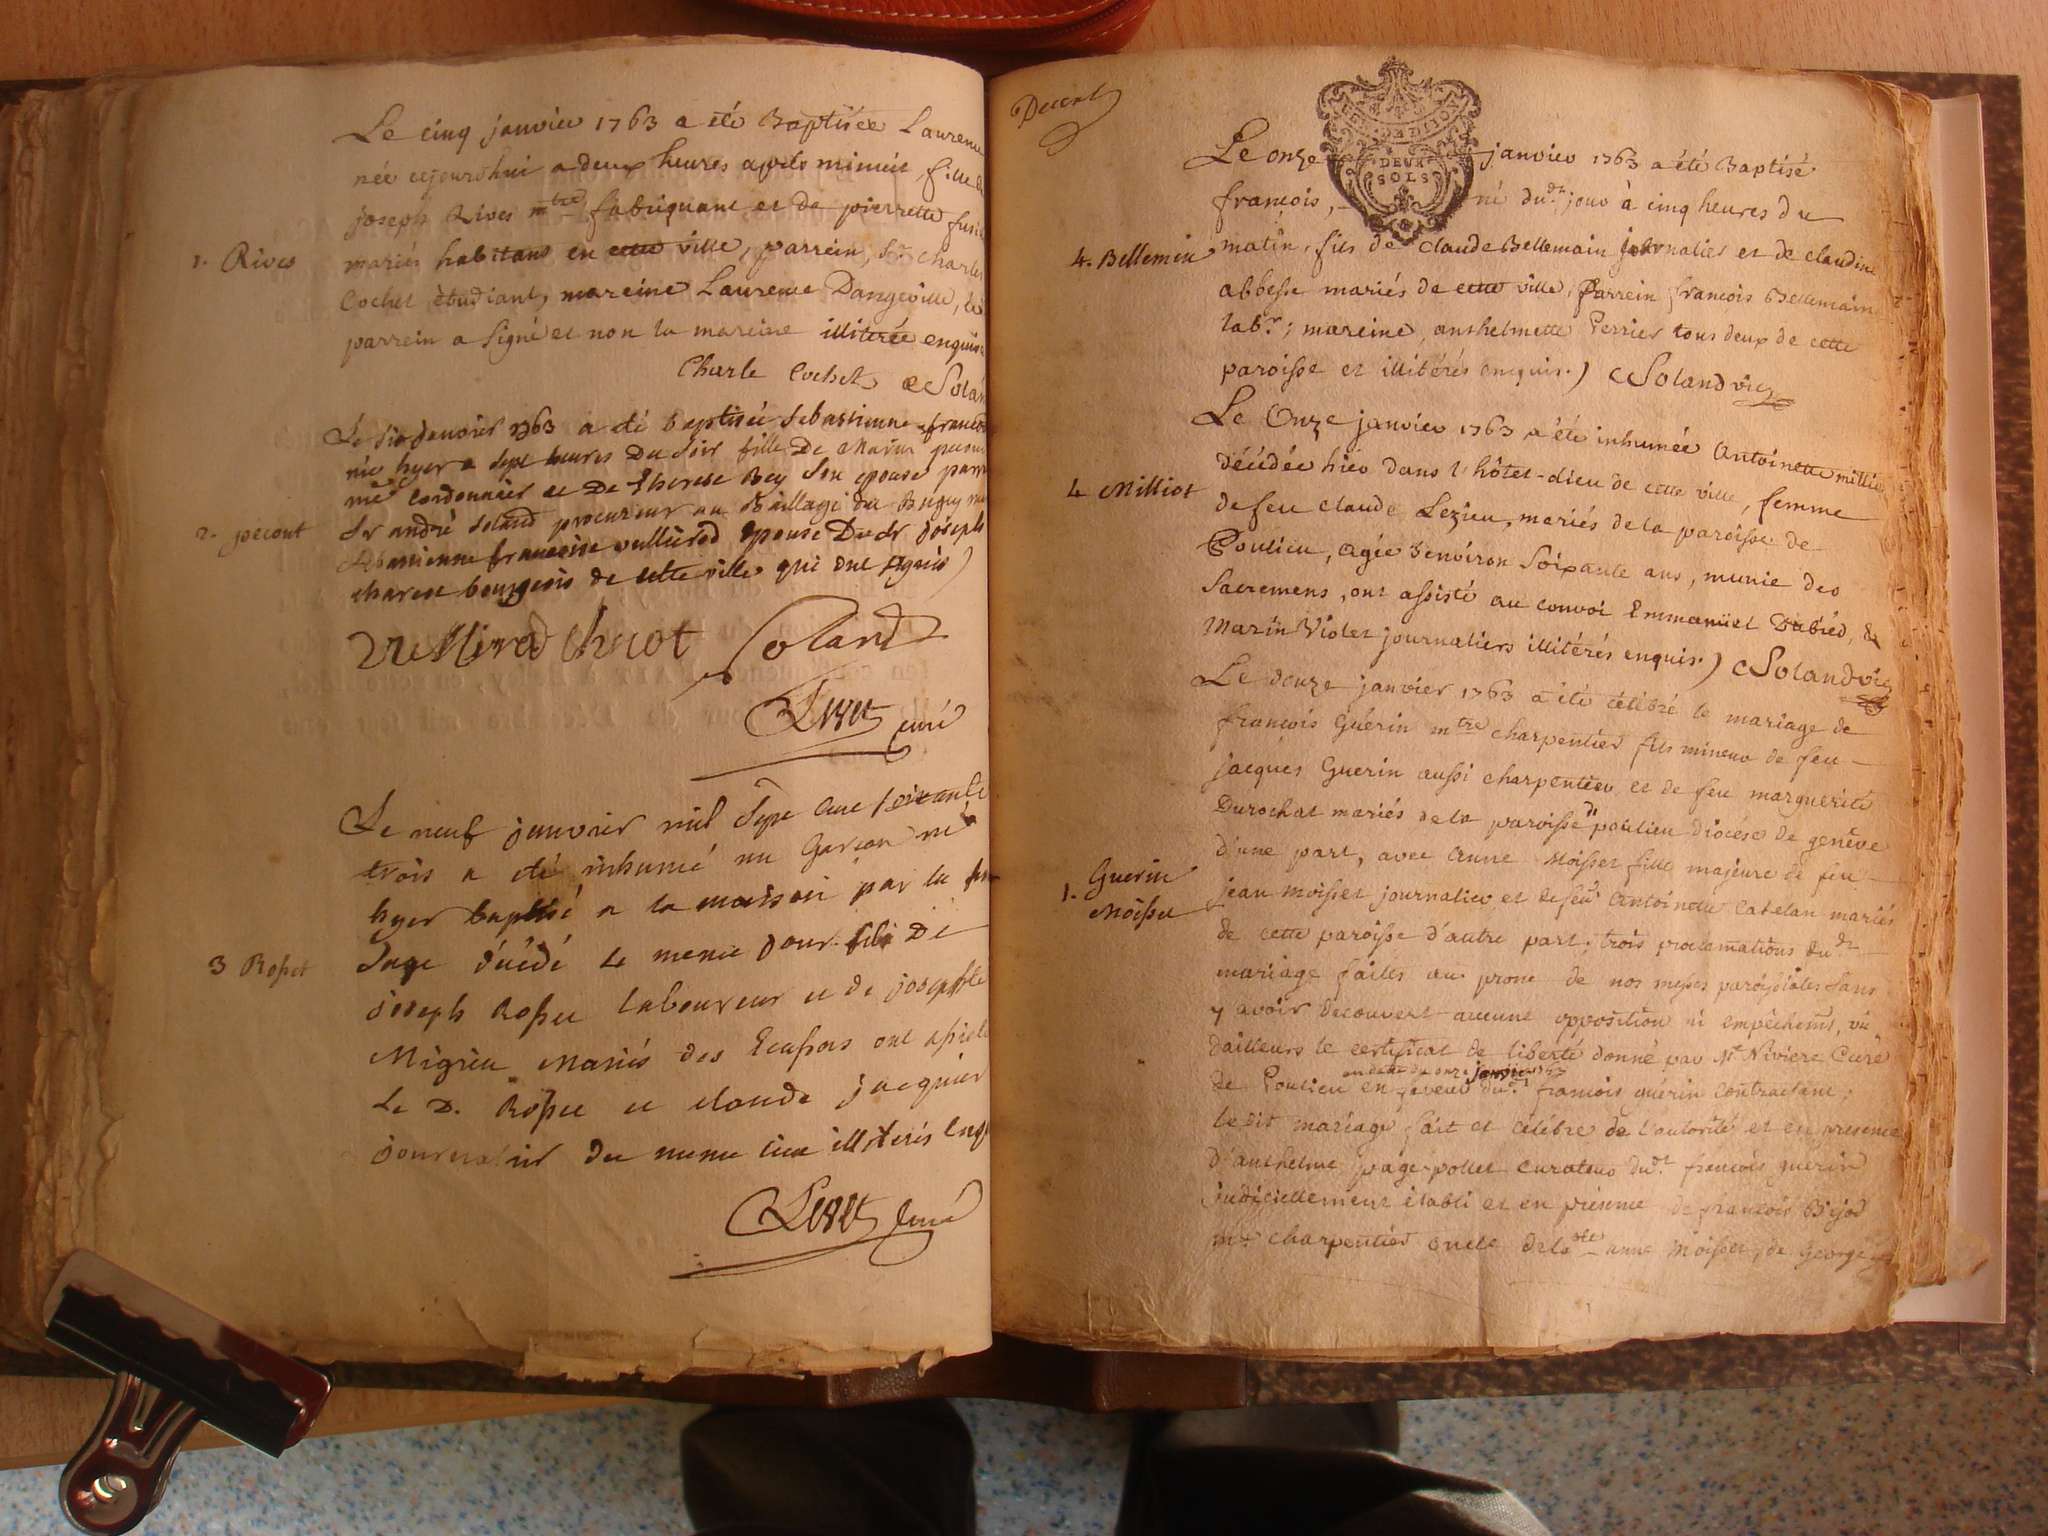 Le cinq janvier 1763 a été Baptisée Laurence
née cejourdhui a deux heures après minuit, fille de
1. Rives
joseph Rives mtre fabriquant et de pierrette
mariés habitans en cette ville, parrein, Sr charles
Cochet étudiant, mareine Laurence Dangeville, le
parrein a signé et non la mareine illiterée enquise
Charle Cochet Soland
Le six Janvier 1763 a été baptisée sebastienne francoise
née hyer a sept heures Du soir fille De Marin pecout
me Cordonnier et De Therese Bey son epouse parrain
2. pecout
Sr andré soland procureur au Baillage du Bugey
sebastienne francoise vullierod epouse Du sr joseph
charcot bourgeois de cette ville qui ont signés)
vullierod Charcot Soland
curé
Le neuf janvier mil sept cent soixante
trois a été inhumé un Garcon né
hyer baptisé a la maison par la
3 Rosset
sage décédé le meme jour fils De
joseph Rosset laboureur et de josephte
Migieu Mariés des Ecassas ont assisté
Le D. Rosset et claude jacquier
journalier du meme lieu illiterés enqs
curé
DEUX
SOLS
Le onze janvier 1763 a été Baptisé
françois, né du.dt jour à cinq heures du
4. Bellemin
matin, fils de Claude Bellemain journalier et de claudine
abbesse mariés de cette ville, Parrein françois Bellemain
labr; mareine, anthelmette Perrier tous deux de cette
paroisse et illitérés enquis.) Soland vic
Le Onze janvier 1763 a été inhumée Antoinette milliot
4 Milliot
décédée hier dans l'hôtel-dieu de cette ville, femme
de feu claude Lezieu, mariés de la paroisse de
Poulieu, agée d'environ Soixante ans, munie des
Sacremens, ont assisté au convoi Emmanuel Dubied, &
Marin Violet journaliers illitérés enquis.) Soland vic
Le douze janvier 1763 a été célébré le mariage de
françois Guérin mtre charpentier fils mineur de feu
jacques Guerin aussi charpentier et de feu marguerite
Durochat mariés de la paroisse de poulieu diocése de genêve
d'une part, avec Anne Moisset fille majeure de feu
1. Guerin
Moisset
jean moisset journalier et de feu Antoinette Catelan mariés
de cette paroisse d'autre part; trois proclamations du.dt
mariage faites au prone de nos messes paroissiales sans
y avoir decouvert aucune opposition ni empêchemt, vu
dailleurs le certificat de liberté donné par Mr Niviere Curé
en date du onze janvier 1763
de Poulieu en faveur du.dt francois guérin contractant;
le dit mariage fait et célébré de l'autorité et en presence
d'anthelme page-pollet curateur du.dt françois guérin
judiciellement établi et en présence de françois Bijod
mtre charpentier oncle de la dte anne Moisset, de George